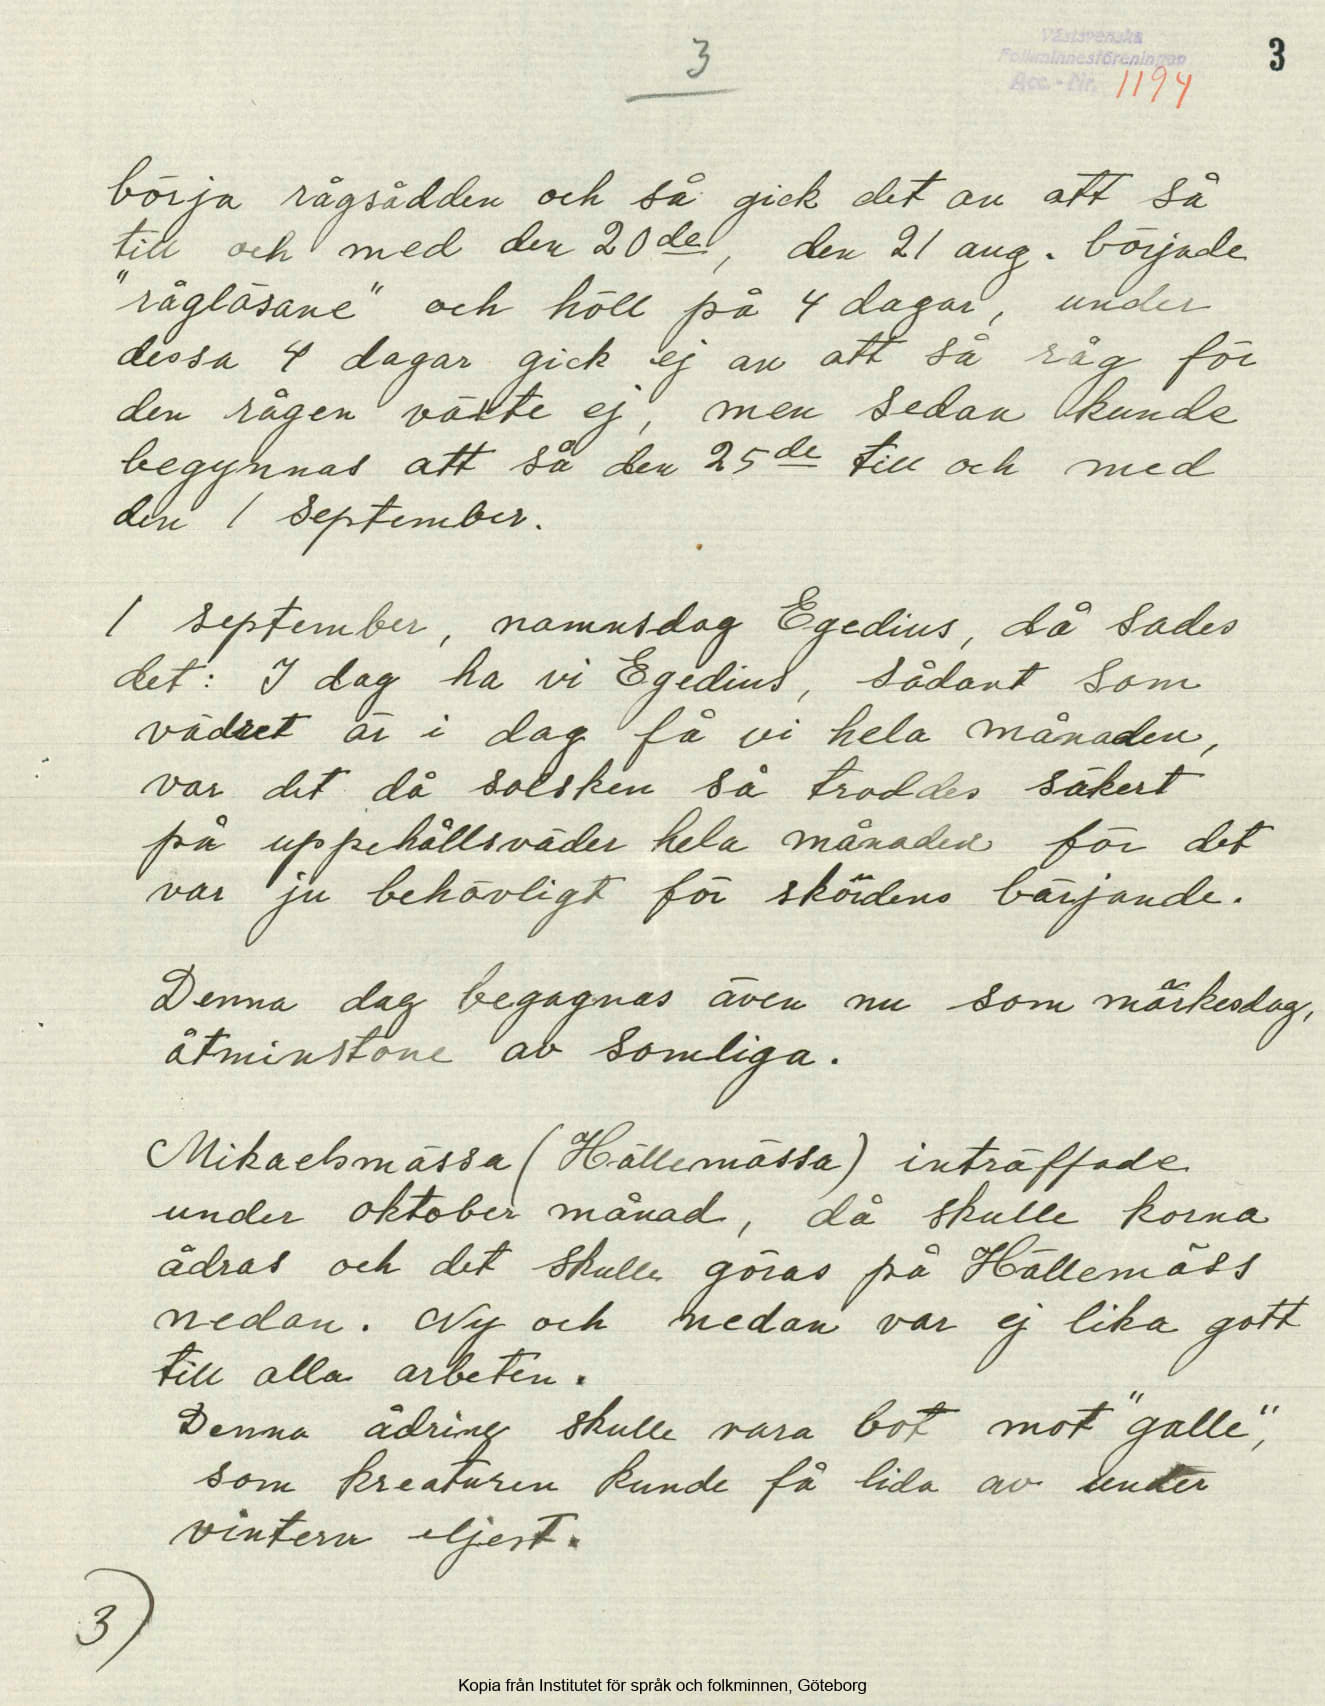 3
Västsvenska
Folkminnesföreningen
Acc.-Nr. 1194
3
börja rågsådden och så gick det an att så
till och med den 20de, den 21 aug. började
"råglåsane" och höll på 4 dagar, under
dessa 4 dagar gick ej an att så råg för
den rågen växte ej, men sedan kunde
begynnas att så den 25de till och med
den 1 september.
1 september, namnsdag Egedius, då sades
det: I dag ha vi Egedius, sådant som
vädret är i dag få vi hela månaden,
var det då solsken så troddes säkert
på uppehållsväder hela månaden för det
var ju behövligt för skördens bärjande.
Denna dag begagnas även nu som märkesdag,
åtminstone av somliga.
Mikaelsmässa (Hällemässa) inträffade
under oktober månad, då skulle korna
ådras och det skulle göras på Hällemäss
nedan. Ny och nedan var ej lika gott
till alla arbeten.
Denna ådring skulle vara bot mot "galle",
som kreaturen kunde få lida av under
vintern eljest.
3)
Kopia från Institutet för språk och folkminnen, Göteborg